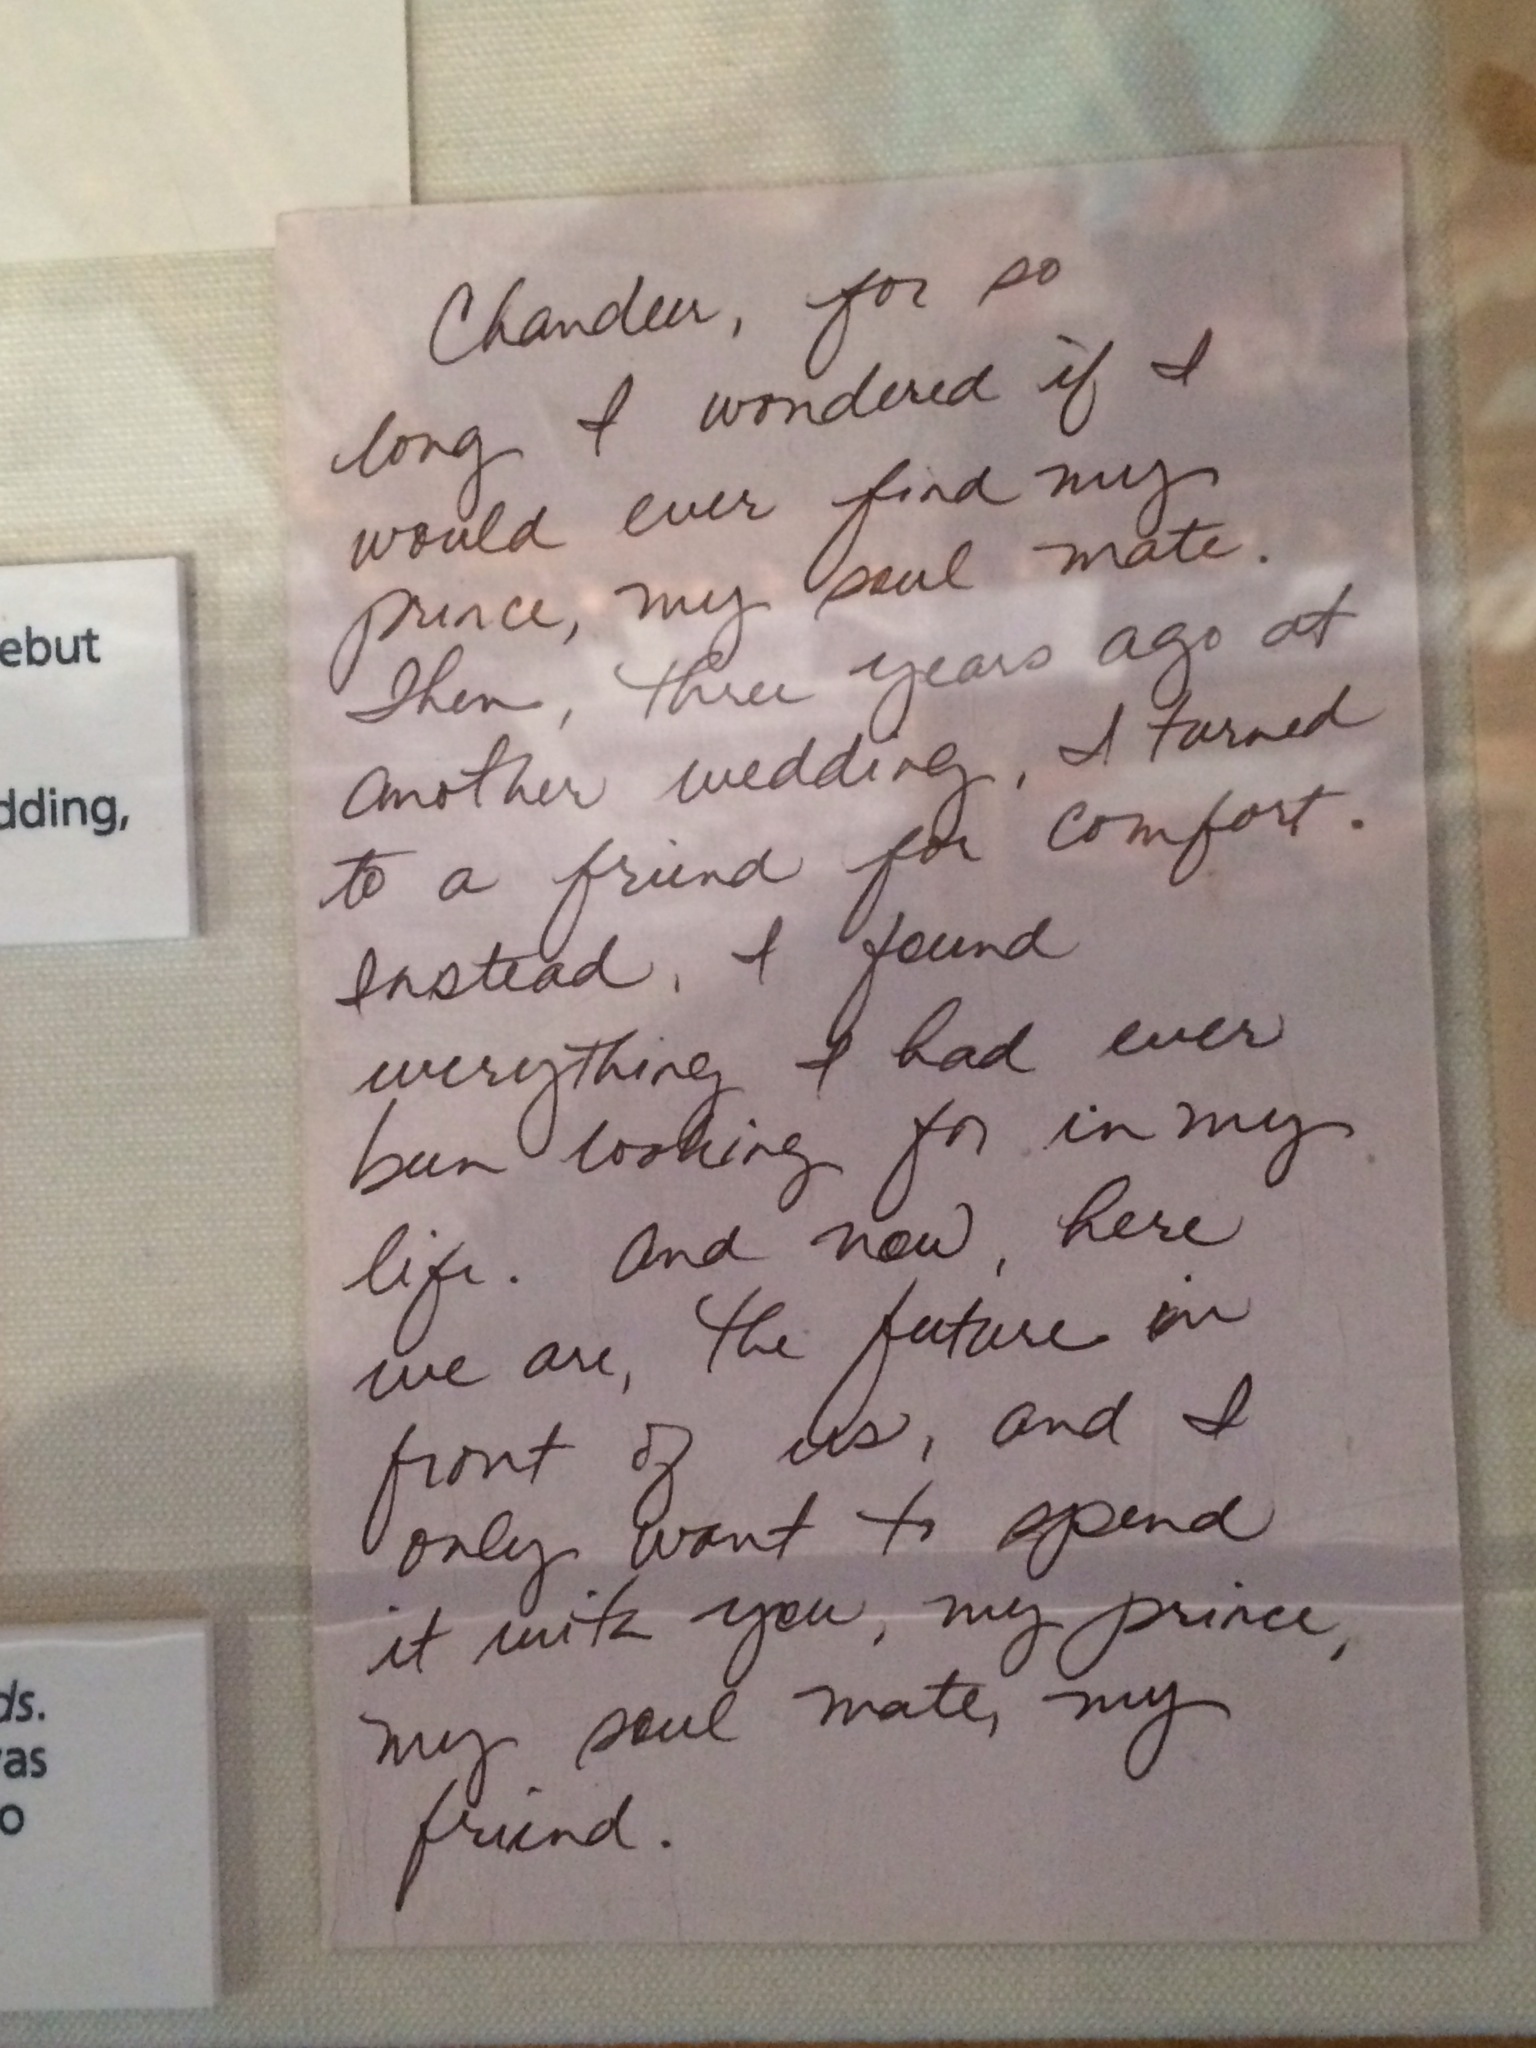 Chandler, for so
long I wondered if I
would ever find my
prince, my soul mate.
Then, three years ago at
another wedding, I turned
to a friend for comfort.
Instead, I found
everything I had ever
been looking for in my
life. And now, here
we are, the future in
front of us, and I
only want to spend
it with you, my prince,
my soul mate, my
friend.
ebut
dding,
ds.
vas
o